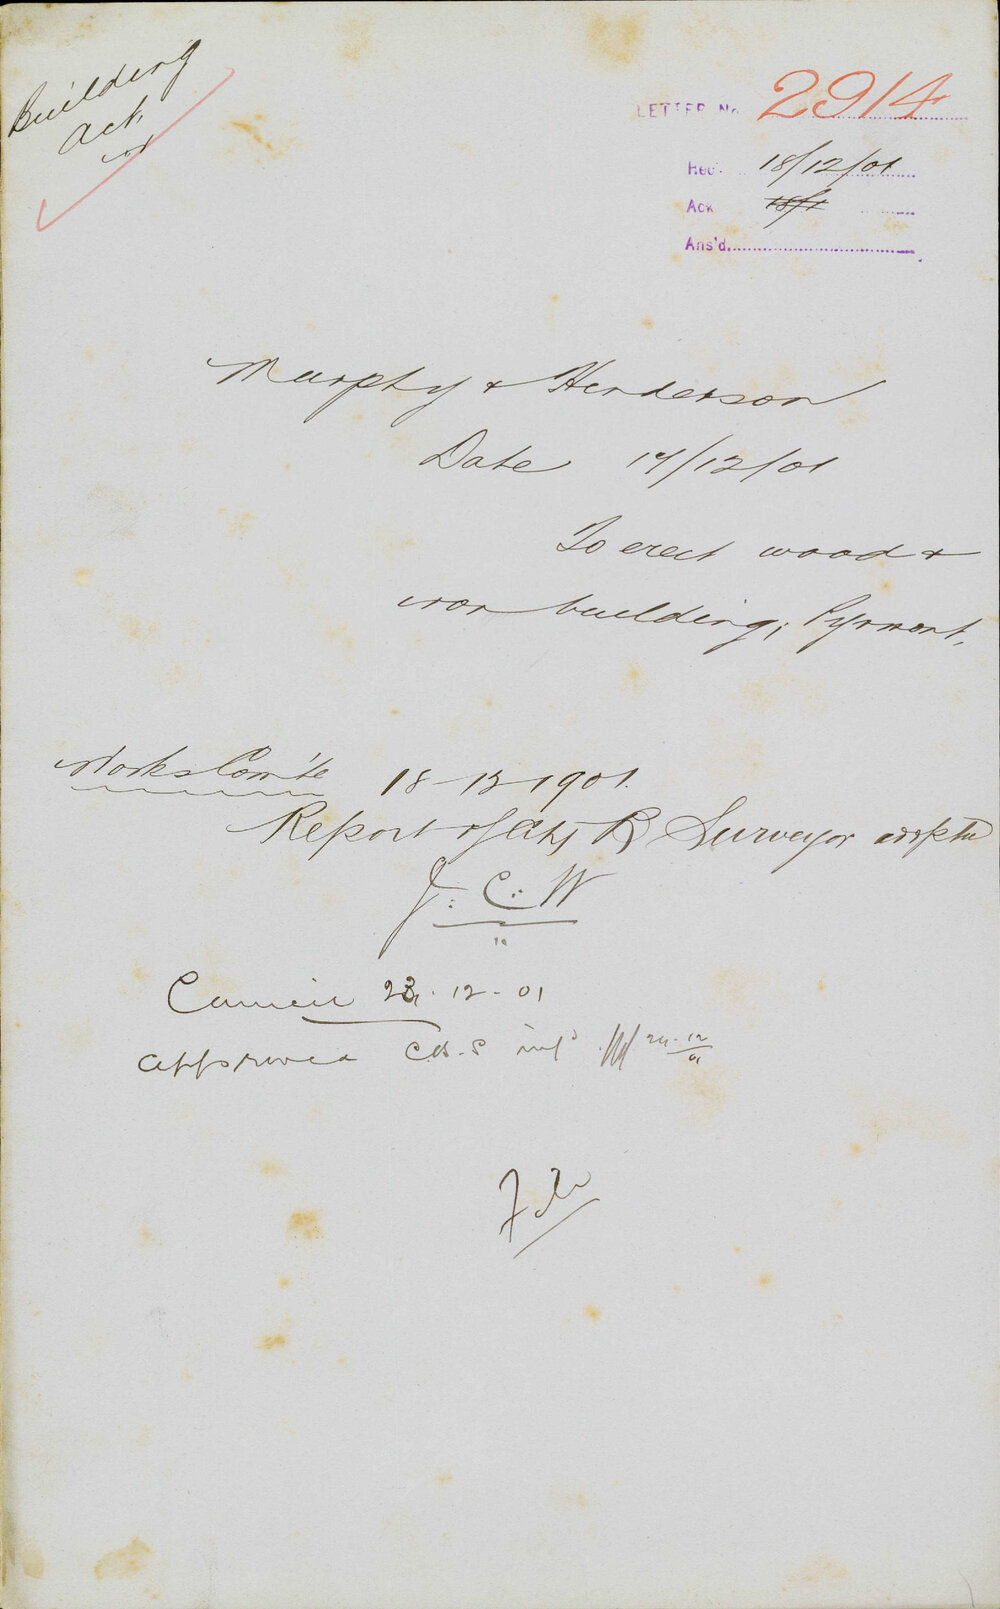 Building
Act.
LETTER No. 2914
Rec'd 18/12/01
Ack
Ans'd
Murphy & Henderson
Date 17/12/01
To erect wood &
iron building, Pyrmont.
Works Com'te 18-12-1901.
Report of City B Surveyor adopted
J. C. W
Council 23-12-01
Approved C.B.S inf'd 24-12/01
File